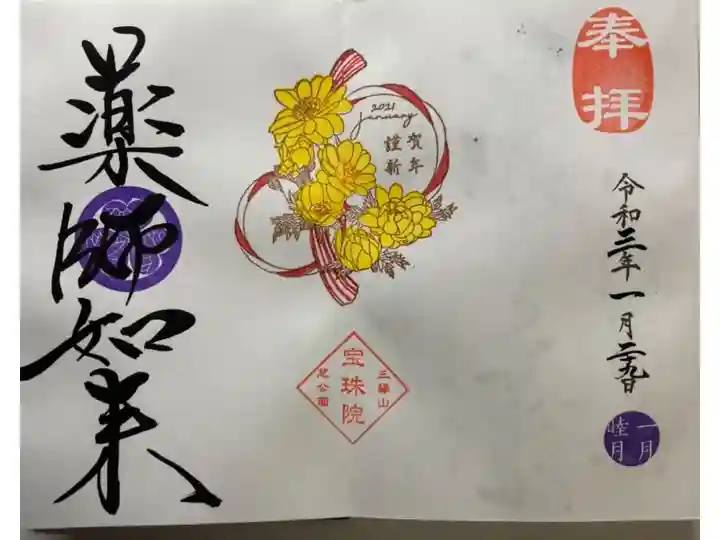 奉拝
令和三年一月二十九日
一月
睦月
2021
January
賀年
謹新
三縁山
宝珠院
芝公園
薬師如来